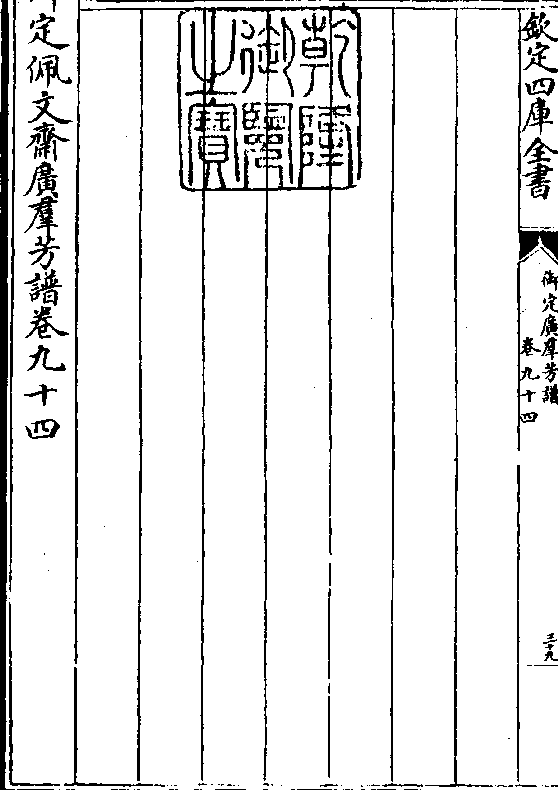 欽定四庫全書
御定廣羣芳譜
卷九十四
三十九
乾隆
御覽
之寶
定佩文齋廣羣芳譜卷九十四